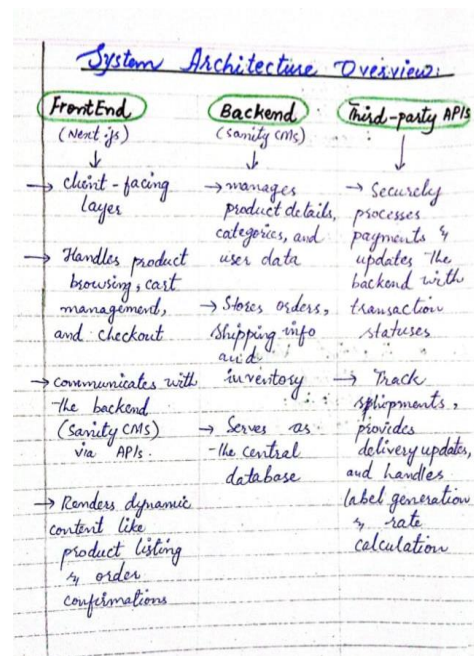 System Architecture Overview:
FrontEnd
(Next.js)
→ client-facing
layer
→ Handles product
browsing, cart
management,
and checkout
→ communicates with
the backend
(Sanity CMS)
via APIs.
→ Renders dynamic
content like
product listing
& order
confirmations
Backend
(Sanity CMS)
→ manages
product details,
categories, and
user data
→ Stores orders,
Shipping info
and
inventory
→ Serves as
the central
database
Third-party APIs
→ Securely
processes
payments &
updates the
backend with
transaction
statuses
→ Track
shipments,
provides
delivery updates,
and handles
label generation
& rate
calculation